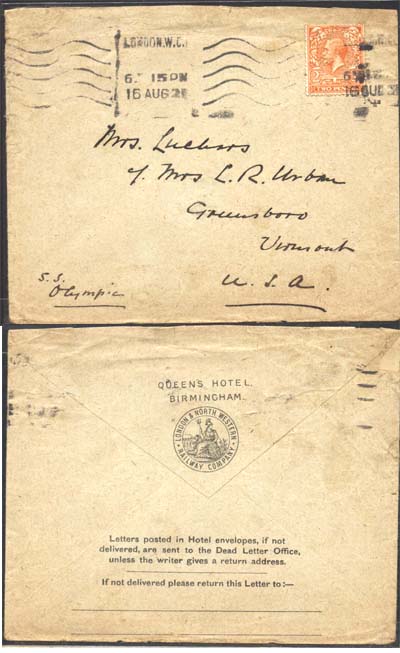 LONDON.W.C.1
6. 15PM
16 AUG 2
TWO PENCE
16 AUG 2
Mrs. Luchars
c/o Mrs L. R. Urban
Greensboro
Vermont
U. S. A.
S. S.
Olympic
QUEEN'S HOTEL.
BIRMINGHAM.
LONDON & NORTH WESTERN
RAILWAY COMPANY
Letters posted in Hotel envelopes, if not
delivered, are sent to the Dead Letter Office,
unless the writer gives a return address.
If not delivered please return this Letter to:—